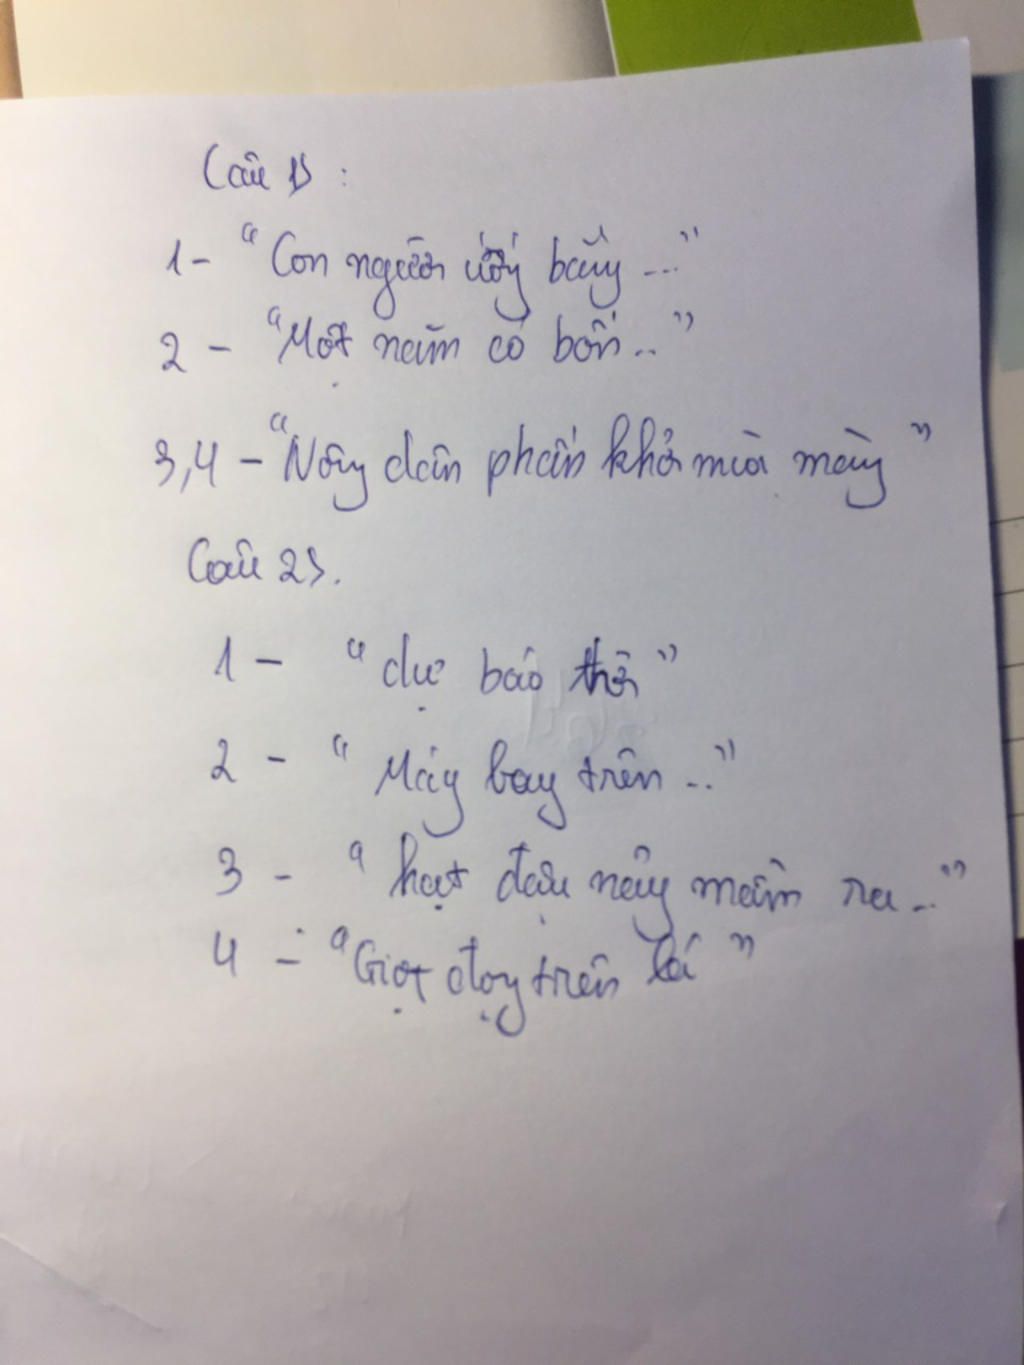 Câu 1) :
1- "Con người ... bằng ..."
2 - "Một năm có bốn.."
3,4 - "Nông dân phấn khởi mùa màng"
Câu 2).
1 - "dự báo thời"
2 - "Máy bay trên .."
3 - "hạt đậu nảy mầm ra.."
4 - "Giọt đọng trên lá"